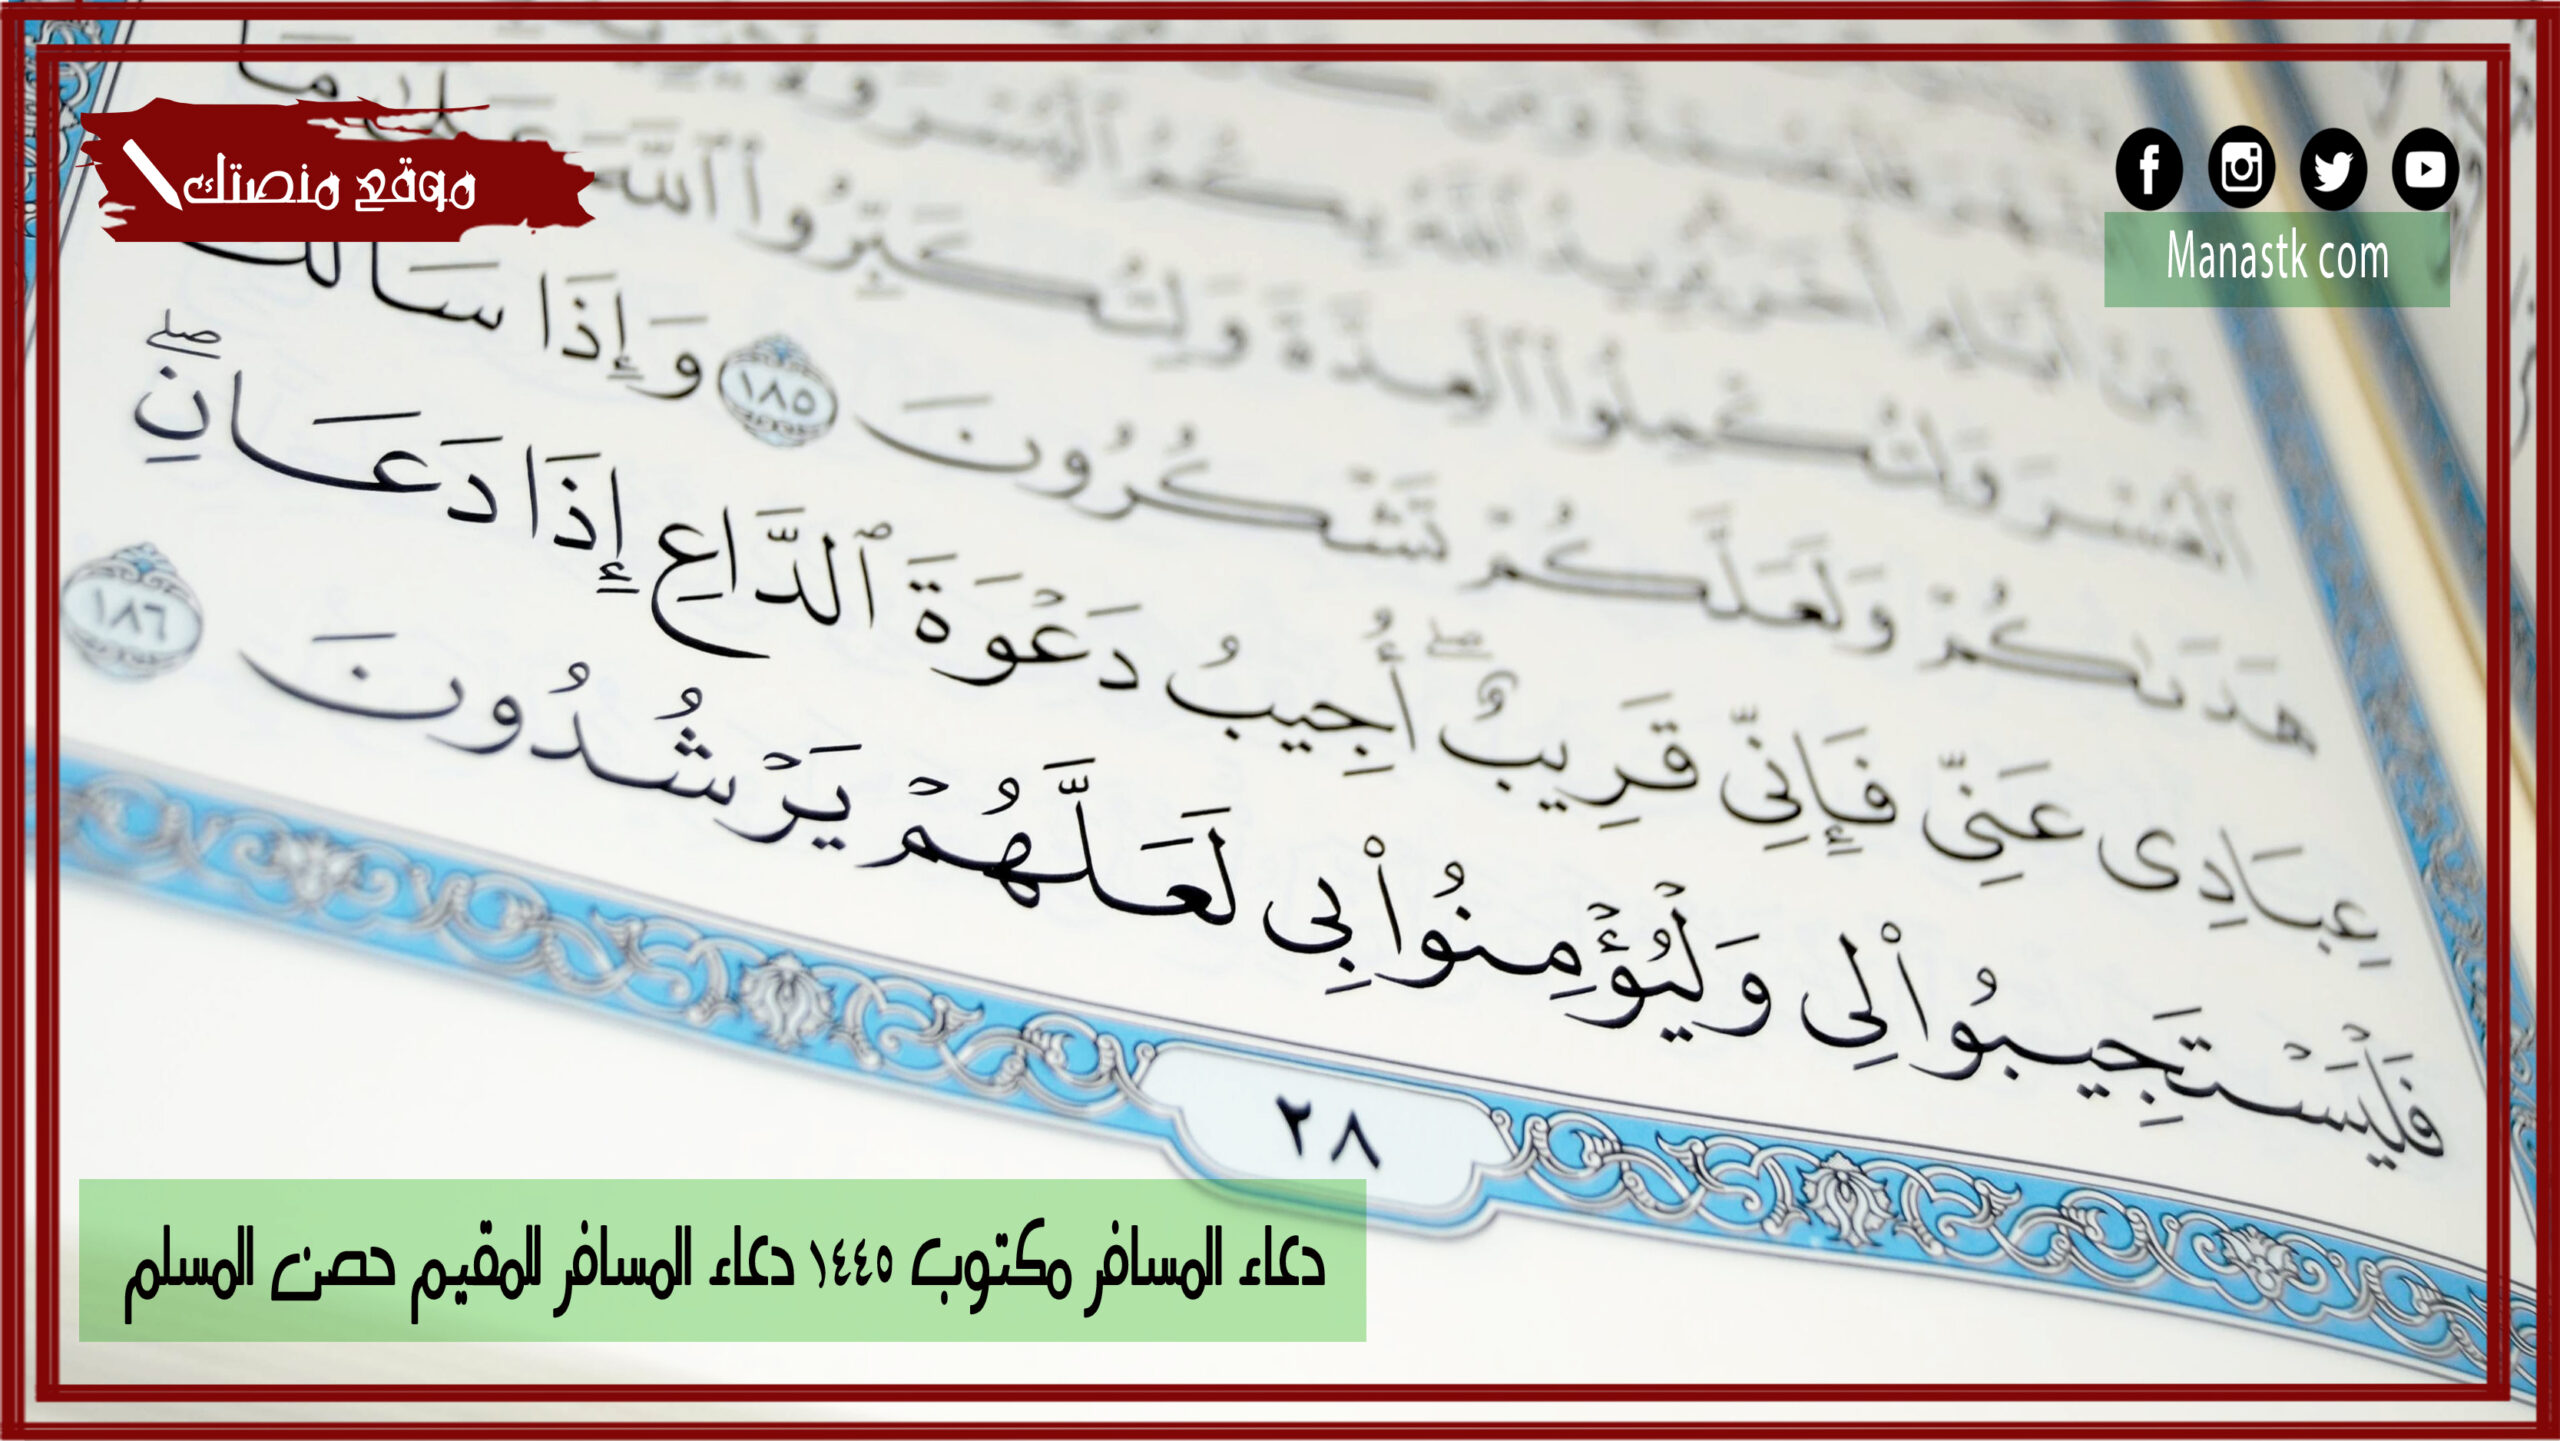 موقع منصتك
Manastk com
ٱلْعُسْرَ وَلِتُكْمِلُوا۟ ٱلْعِدَّةَ وَلِتُكَبِّرُوا۟ ٱللَّهَ عَلَىٰ مَا
هَدَىٰكُمْ وَلَعَلَّكُمْ تَشْكُرُونَ ١٨٥ وَإِذَا سَأَلَكَ
عِبَادِى عَنِّى فَإِنِّى قَرِيبٌ ۖ أُجِيبُ دَعْوَةَ ٱلدَّاعِ إِذَا دَعَانِ ۖ
فَلْيَسْتَجِيبُوا۟ لِى وَلْيُؤْمِنُوا۟ بِى لَعَلَّهُمْ يَرْشُدُونَ ١٨٦
٢٨
دعاء المسافر مكتوب ١٤٤٥ دعاء المسافر للمقيم حصن المسلم